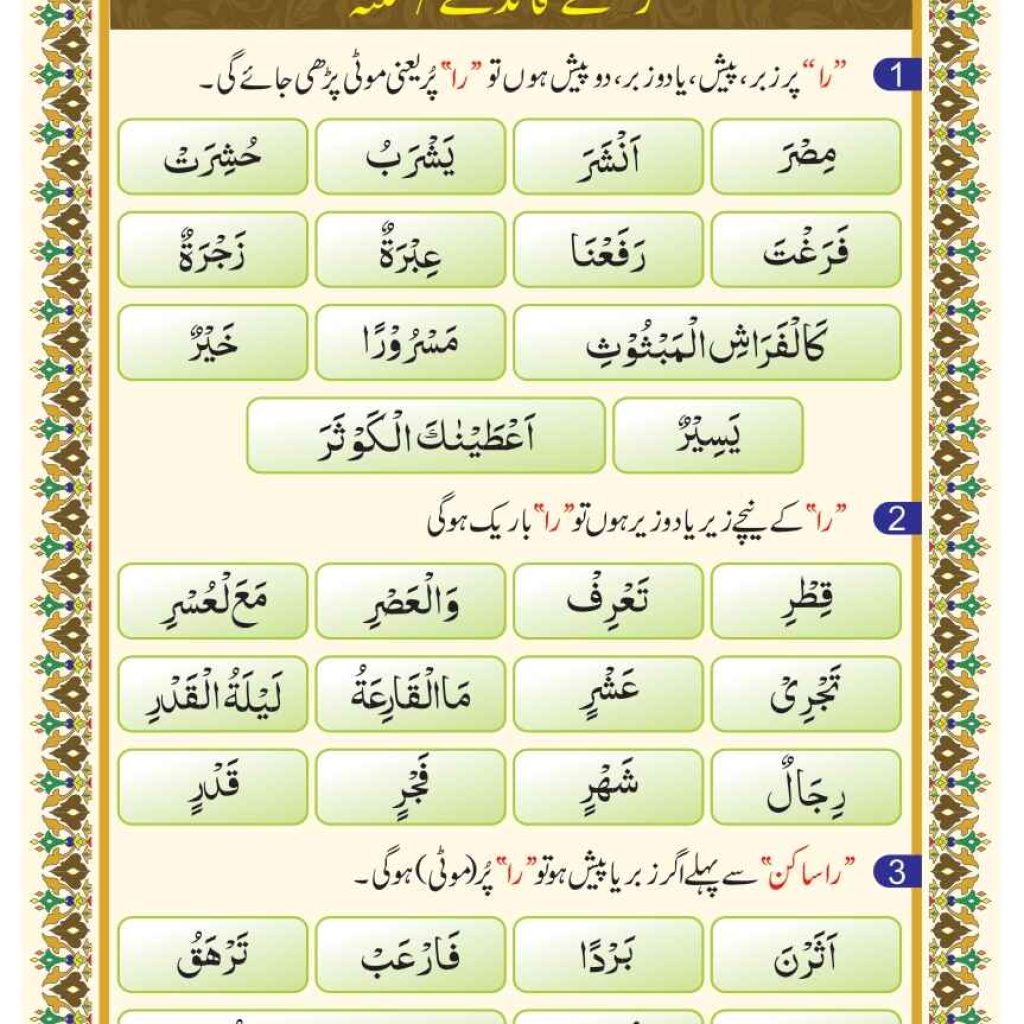 1 ”را“ پر زبر، پیش، یا دو زبر، دو پیش ہوں تو ”را“ پُر یعنی موٹی پڑھی جائے گی۔
مِصْرَ اَنْشَرَ يَشْرَبُ حُشِرَتْ
فَرَغْتَ رَفَعْنَا عِبْرَةٌ زَجْرَةٌ
كَالْفَرَاشِ الْمَبْثُوْثِ مَسْرُوْرًا خَيْرٌ
يَسِيْرٌ اَعْطَيْنٰكَ الْكَوْثَرَ
2 ”را“ کے نیچے زیر یا دو زیر ہوں تو ”را“ باریک ہوگی
قِطْرِ تَعْرِفْ وَالْعَصْرِ مَعَ لْعُسْرِ
تَجْرِيْ عَشْرٍ مَا الْقَارِعَةُ لَيْلَةُ الْقَدْرِ
رِجَالٌ شَهْرٍ فَجْرٍ قَدْرٍ
3 ”را ساکن“ سے پہلے اگر زبر یا پیش ہو تو ”را“ پُر (موٹی) ہوگی۔
اَثَرْنَ بَرْدًا فَارْغَبْ تَرْهَقُ